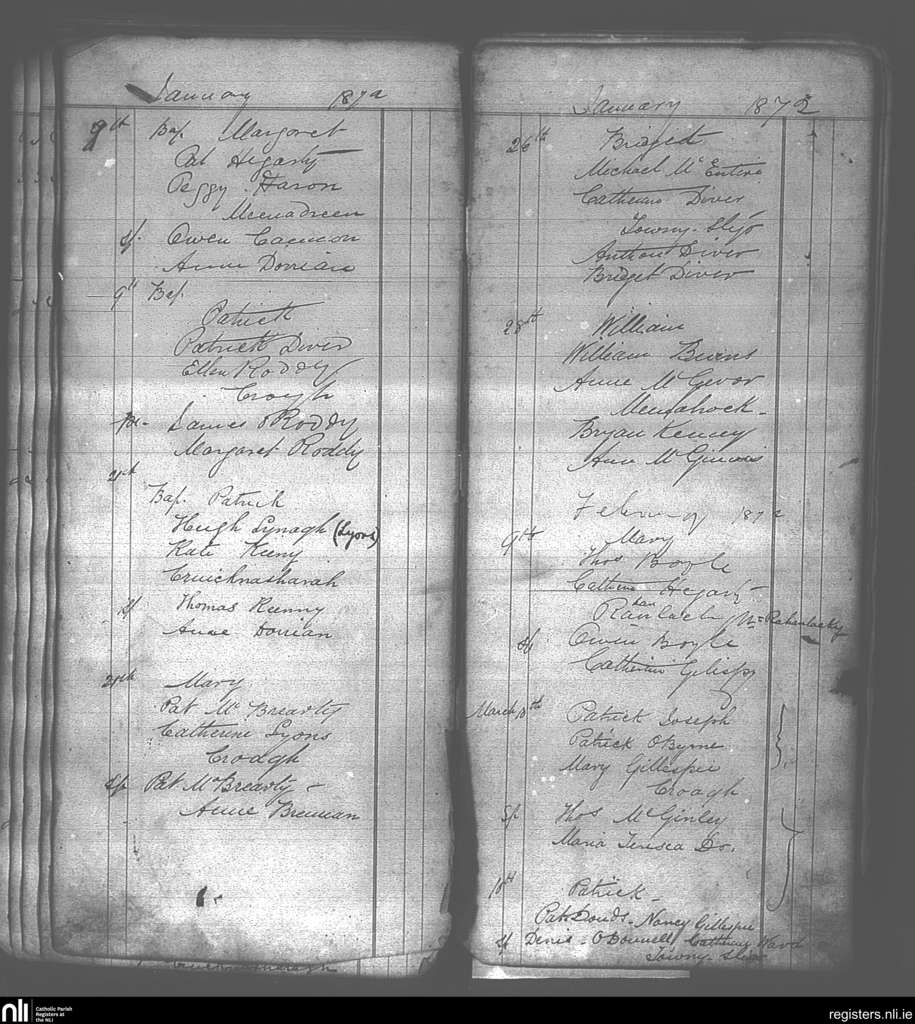 January 1872
9th Bap. Margaret
Pat Hegarty
Peggy Haron
Meenadreen
Sp. Owen
Anne Dorrian
9th Bap.
Patrick
Patrick Diver
Ellen Roddy
Croagh
James Roddy
Margaret Roddy
21st
Bap. Patrick
Hugh Lynagh (Lyons)
Kate Keeny
Cruicknashanah
Sp Thomas Kunny
Anne Dorrian
28th Mary
Pat McBrearty
Catherine Lyons
Croagh
Sp Pat McBrearty
Anne Brennan
January 1872
26th Bridget
Michael McEntire
Catherine Diver
Towny Sligo
Anthony Diver
Bridget Diver
28th William
William Burns
Anne McGevor
Bryan Kenney
Anne
February 1872
9th Mary
Thos Boyle
Catherine Hegarty
Sp Owen Boyle
Catherine Gillespy
March 10th Patrick Joseph
Patrick O'Byrne
Mary Gillespie
Croagh
Sp Thos McGinley
Maria Teresea Do.
10th Patrick
Pat Nancy Gillespie
Sp Denis O'Donnell Catherine Ward
nli Catholic Parish
Registers at
the NLI
registers.nli.ie